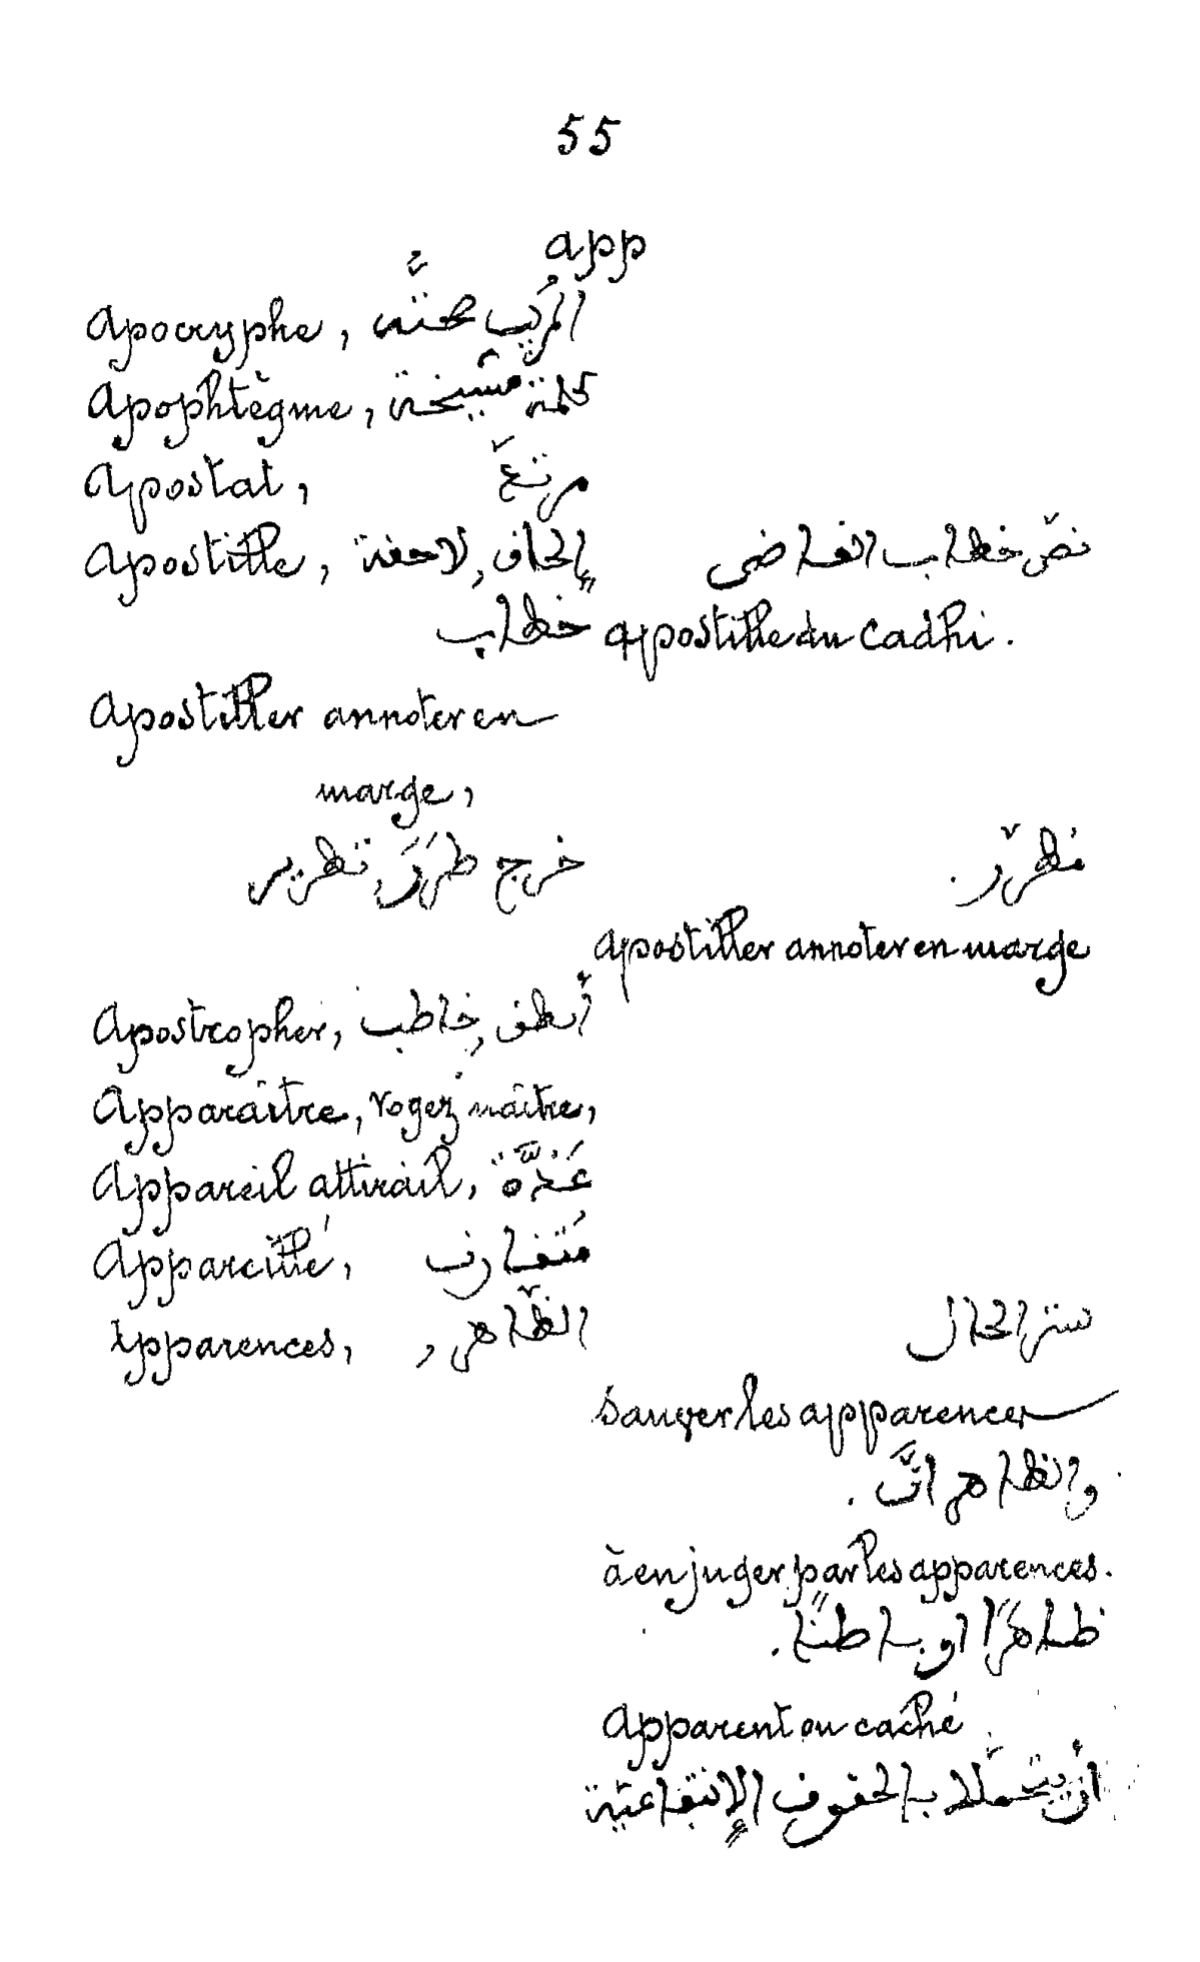 55
app
Apocryphe,
Apophtègme, كلمة مشيخة
Apostat,
Apostille, إلحاق, لاحقة
خطاب
نصّ خطاب القاضي
apostille du Cadhi.
Apostiller annoter en
marge,
خرج طرّر, تطرير
مطرّر.
apostiller annoter en marge
Apostropher, خاطب
Apparaître, voyez naître,
Appareil attirail, عدّة
Appareillé, متقارب
Apparences, الظّاهر,
ستر الحال
sauver les apparences
والظاهر أنّ.
à en juger par les apparences.
ظاهرًا او باطنًا.
apparent ou caché
بالحقوق الإنتفاعيّة